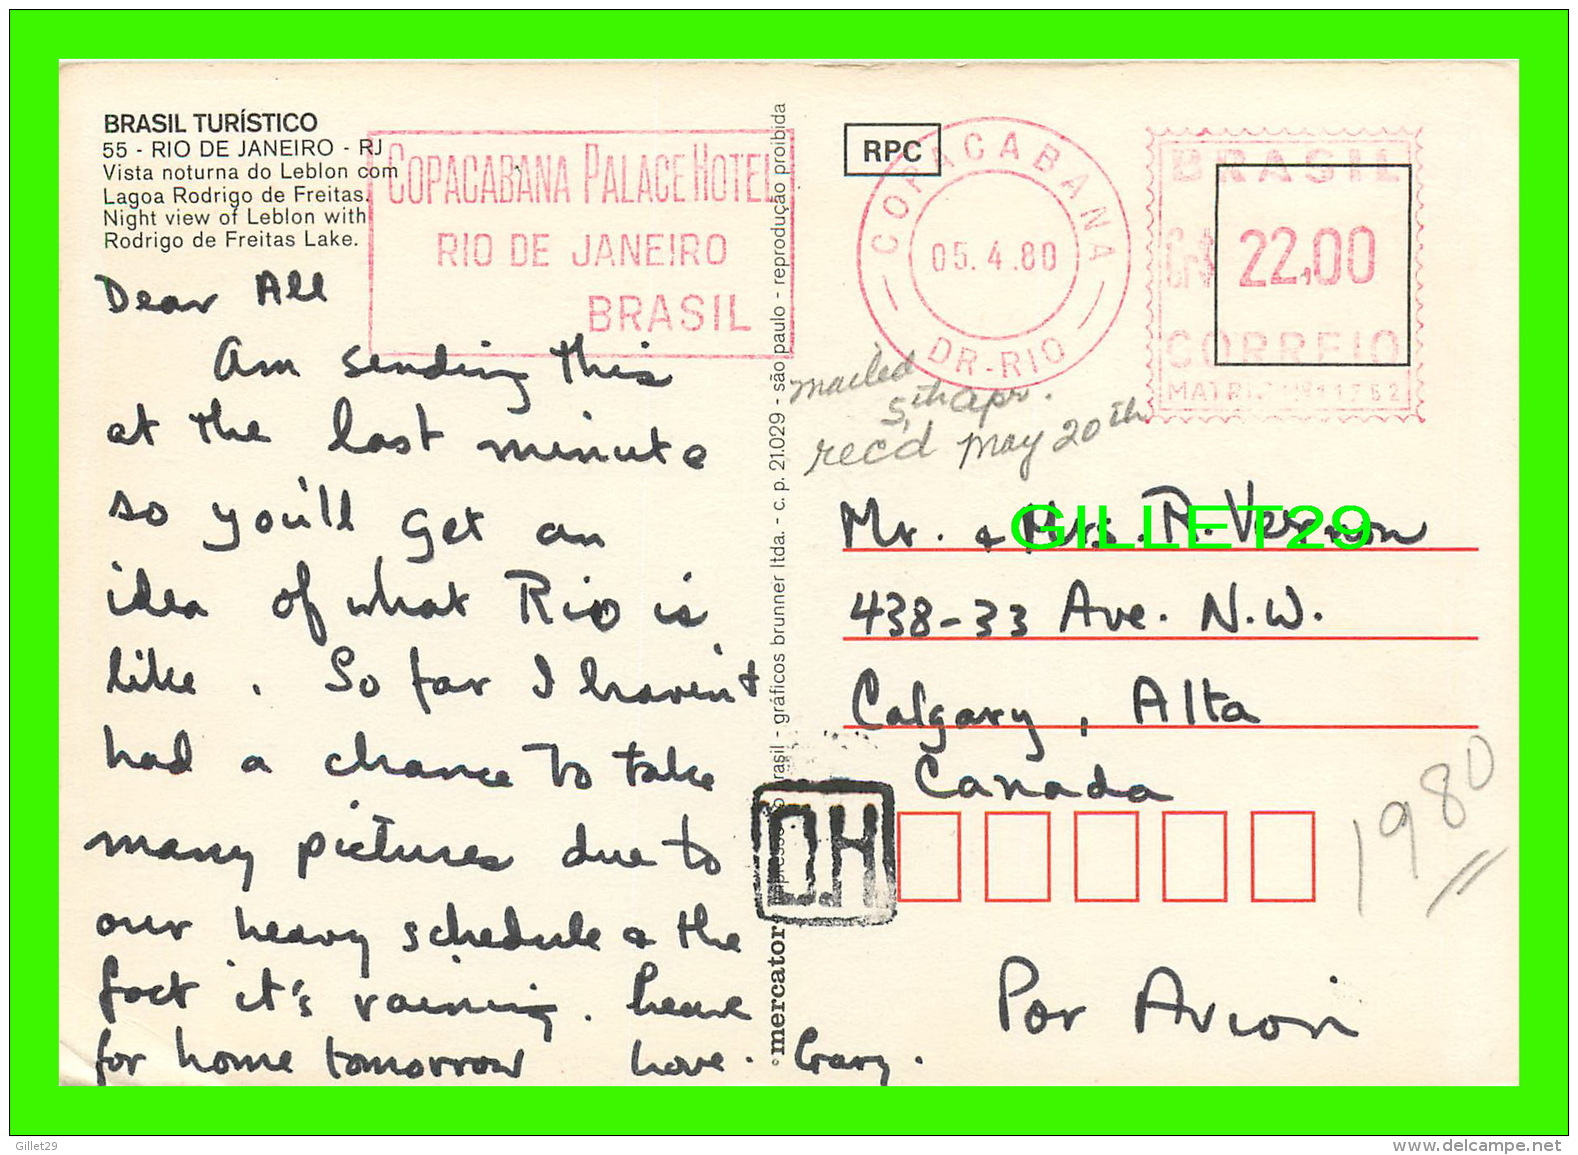 BRASIL TURÍSTICO
55 - RIO DE JANEIRO - RJ
Vista noturna do Leblon com
Lagoa Rodrigo de Freitas.
Night view of Leblon with
Rodrigo de Freitas Lake.
COPACABANA PALACE HOTEL
RIO DE JANEIRO
BRASIL
RPC
COPACABANA
05.4.80
DR-RIO
BRASIL
22,00
CORREIO
Dear All
Am sending this
at the last minute
so you'll get an
idea of what Rio is
like. So far I haven't
had a chance to take
many pictures due to
our heavy schedule & the
fact it's raining. Leave
for home tomorrow Love. Gary.
mercator
brasil - gráficos brunner ltda. - c. p. 21.029 - são paulo - reprodução proibida
mailed
5th Apr.
rec'd May 20th
Mr. & Mrs. R. Vernon
438-33 Ave. N.W.
Calgary, Alta
Canada
GILLET29
O.H
1980
Por Avion
Gillet29
www.delcampe.net